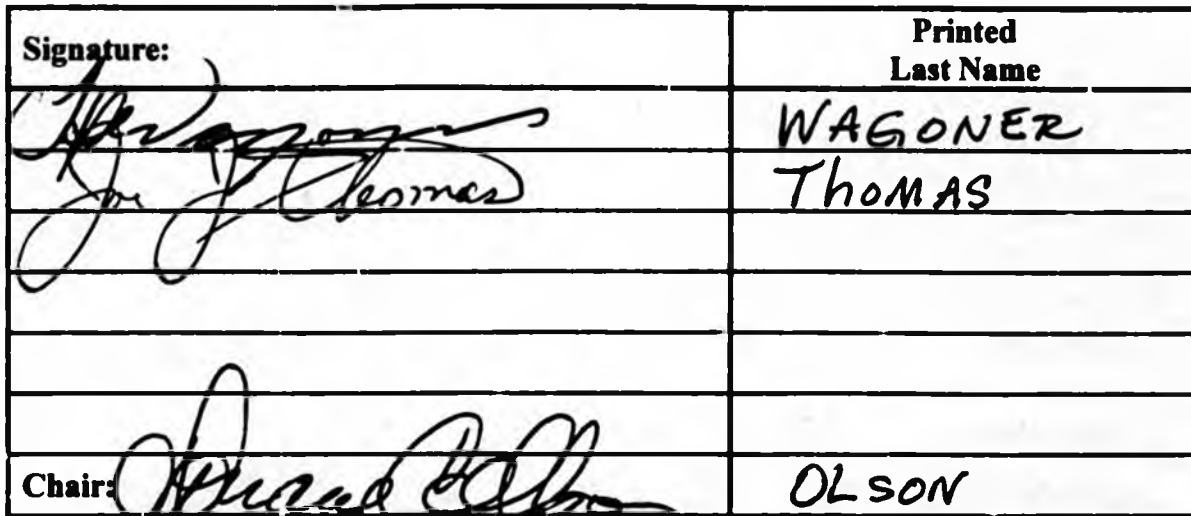 Signature:
Printed
Last Name
WAGONER
Joe J. Thomas
ThomAS
Chair:
OLSON